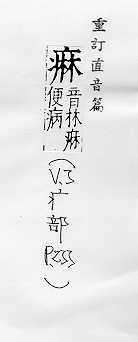 重訂直音篇
痳
音林痳
便病
(V.3
疒部
)